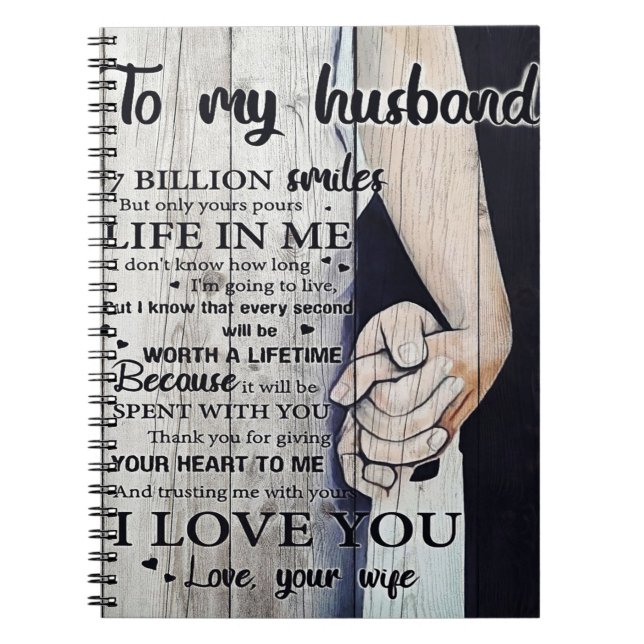 To my husband
7 BILLION smiles
But only yours pours
LIFE IN ME
I don't know how long
I'm going to live,
But I know that every second
will be
WORTH A LIFETIME
Because it will be
SPENT WITH YOU
Thank you for giving
YOUR HEART TO ME
And trusting me with yours
I LOVE YOU
Love, your wife